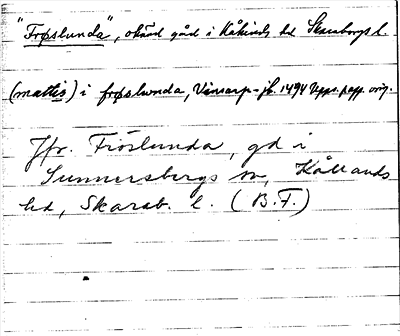 "Frøslunda", okänd gård i Kåkinds hd Skaraborgs l.
(mattis) i frøslunda, Vinsarp-jb. 1494 Upps. papp. orig.
Jfr. Fröslunda, gd i
Sunnersbergs sn, Kållands
hd, Skarab. l. (B.F.)